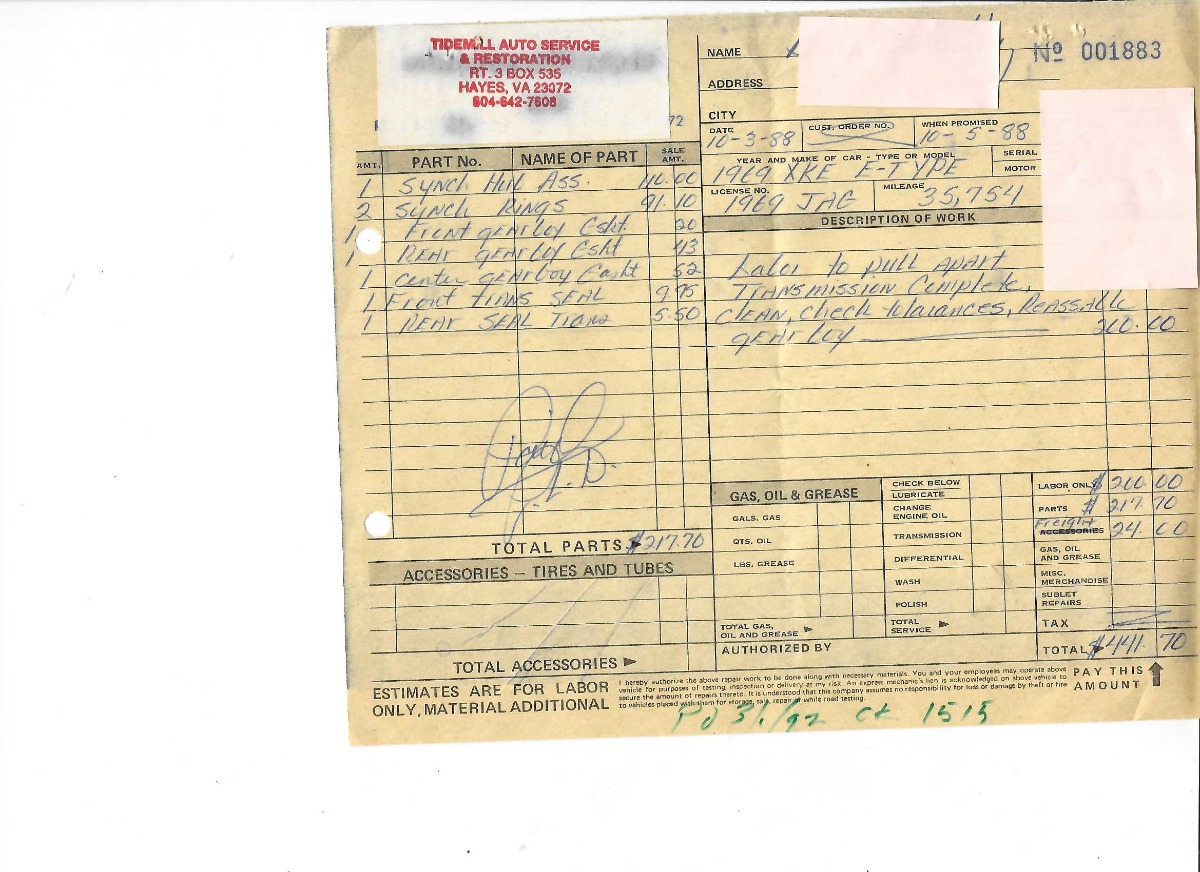 TIDEMILL AUTO SERVICE
& RESTORATION
RT. 3 BOX 535
HAYES, VA 23072
804-642-7608
72
NAME
Nº 001883
ADDRESS
CITY
DATE CUST. ORDER NO. WHEN PROMISED
10-3-88 10-5-88
YEAR AND MAKE OF CAR - TYPE OR MODEL SERIAL
1969 XKE E-TYPE MOTOR
LICENSE NO. MILEAGE
1969 JAG 35,754
DESCRIPTION OF WORK
Labor to pull apart
TRANSMISSION Complete,
CLEAN, check tolarances, REASSAble
gearboy 200.00
AMT. PART No. NAME OF PART SALE AMT.
1 Synch Hub Ass. 110.00
2 SYNCH RINGS 91.10
1 Front gearboy Gsht. 20
1 REAR gearboy Gsht 43
1 center gearboy Gasht 52
1 Front TRANS SEAL 9.95
1 REAR SEAL Trans 5.50
TOTAL PARTS $217.70
ACCESSORIES – TIRES AND TUBES
TOTAL ACCESSORIES
GAS, OIL & GREASE
GALS, GAS
QTS. OIL
LBS, GREASE
TOTAL GAS,
OIL AND GREASE
CHECK BELOW
LUBRICATE
CHANGE
ENGINE OIL
TRANSMISSION
DIFFERENTIAL
WASH
POLISH
TOTAL
SERVICE
LABOR ONLY $200 00
PARTS $217.70
Freight
ACCESSORIES 24.00
GAS, OIL
AND GREASE
MISC,
MERCHANDISE
SUBLET
REPAIRS
TAX
TOTAL $441.70
AUTHORIZED BY
ESTIMATES ARE FOR LABOR
ONLY, MATERIAL ADDITIONAL
I hereby authorize the above repair work to be done along with necessary materials. You and your employees may operate above
vehicle for purposes of testing, inspection or delivery at my risk. An express mechanic's lien is acknowledged on above vehicle to
secure the amount of repairs thereto. It is understood that this company assumes no responsibility for loss or damage by theft or fire
to vehicles placed with them for storage, sale, repair or while road testing.
PAY THIS
AMOUNT
Pd ck 1515